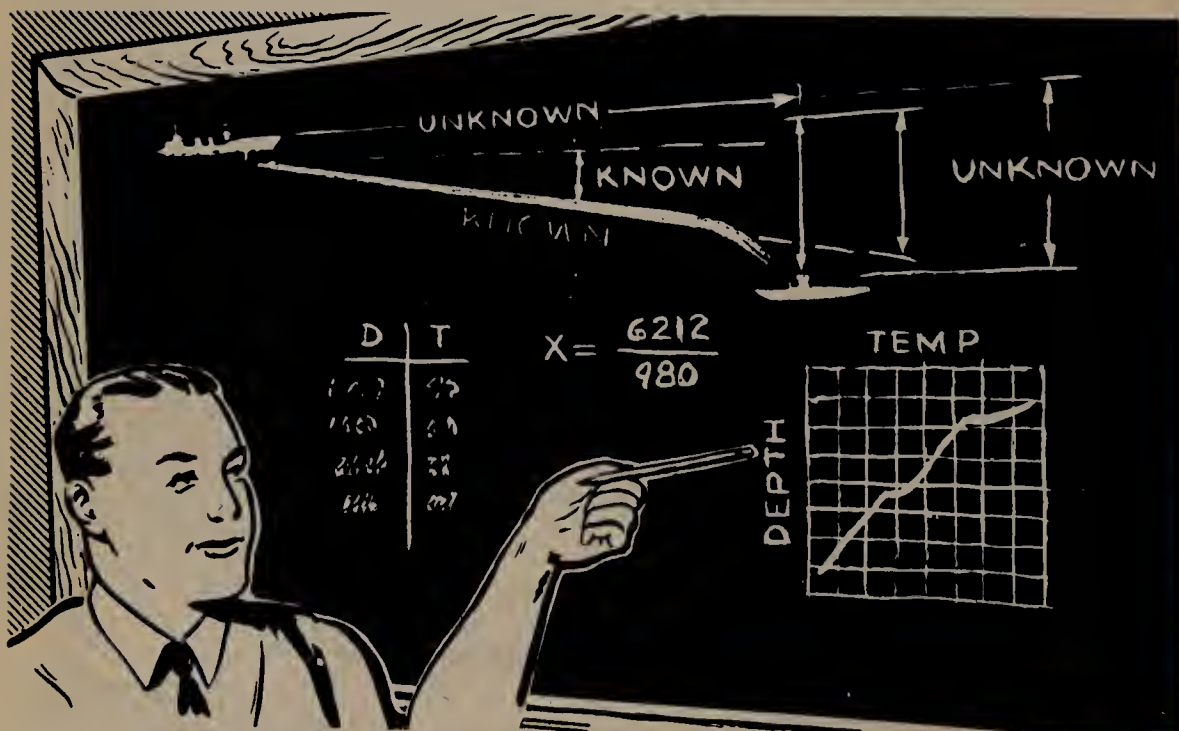 UNKNOWN
KNOWN
UNKNOWN
KNOWN
D T
X = 6212
980
TEMP
DEPTH